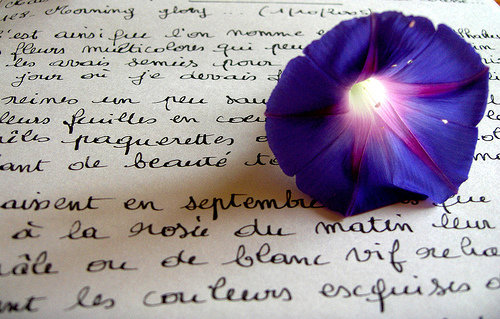 Morning glory (1/10/2005)
est ainsi que l'on nomme
fleurs multicolores qui peu
les avais semées pour
jour où je devais
reines un peu sau
leurs feuilles en coeu
pâquerettes
ant de beauté to
aissent en septembre que
à la rosée du matin leur
âle ou de blanc vif reha
nt les couleurs exquises